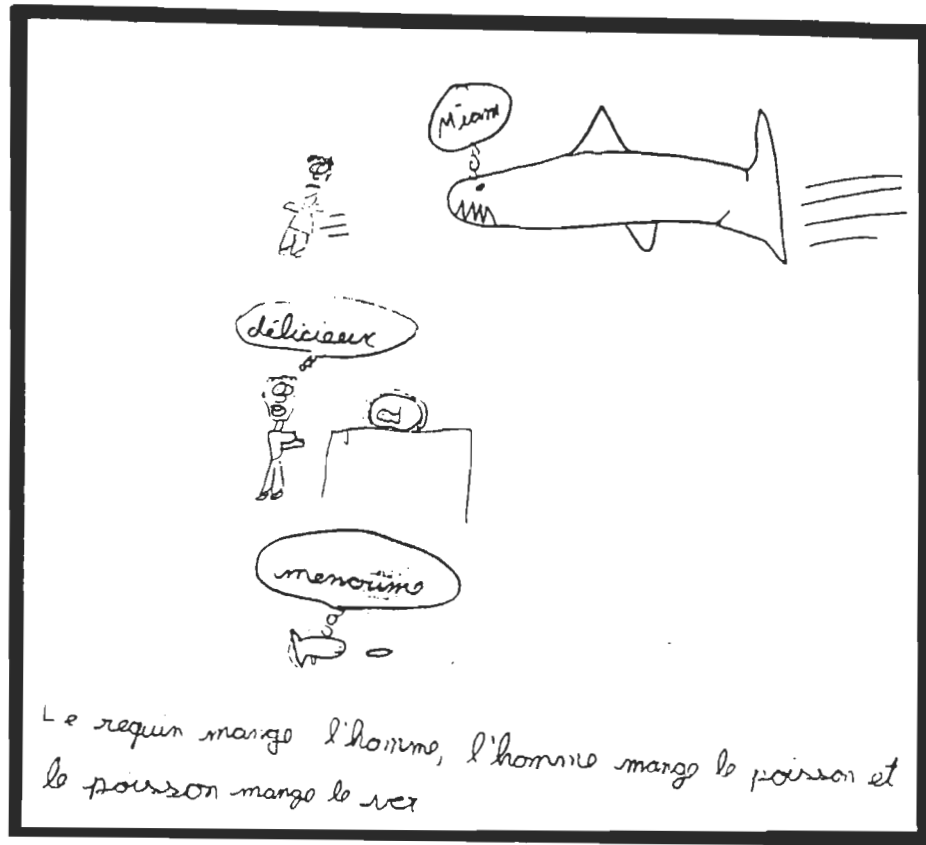 Miam
délicieux
Le requin mange l'homme, l'homme mange le poisson et
le poisson mange le ver